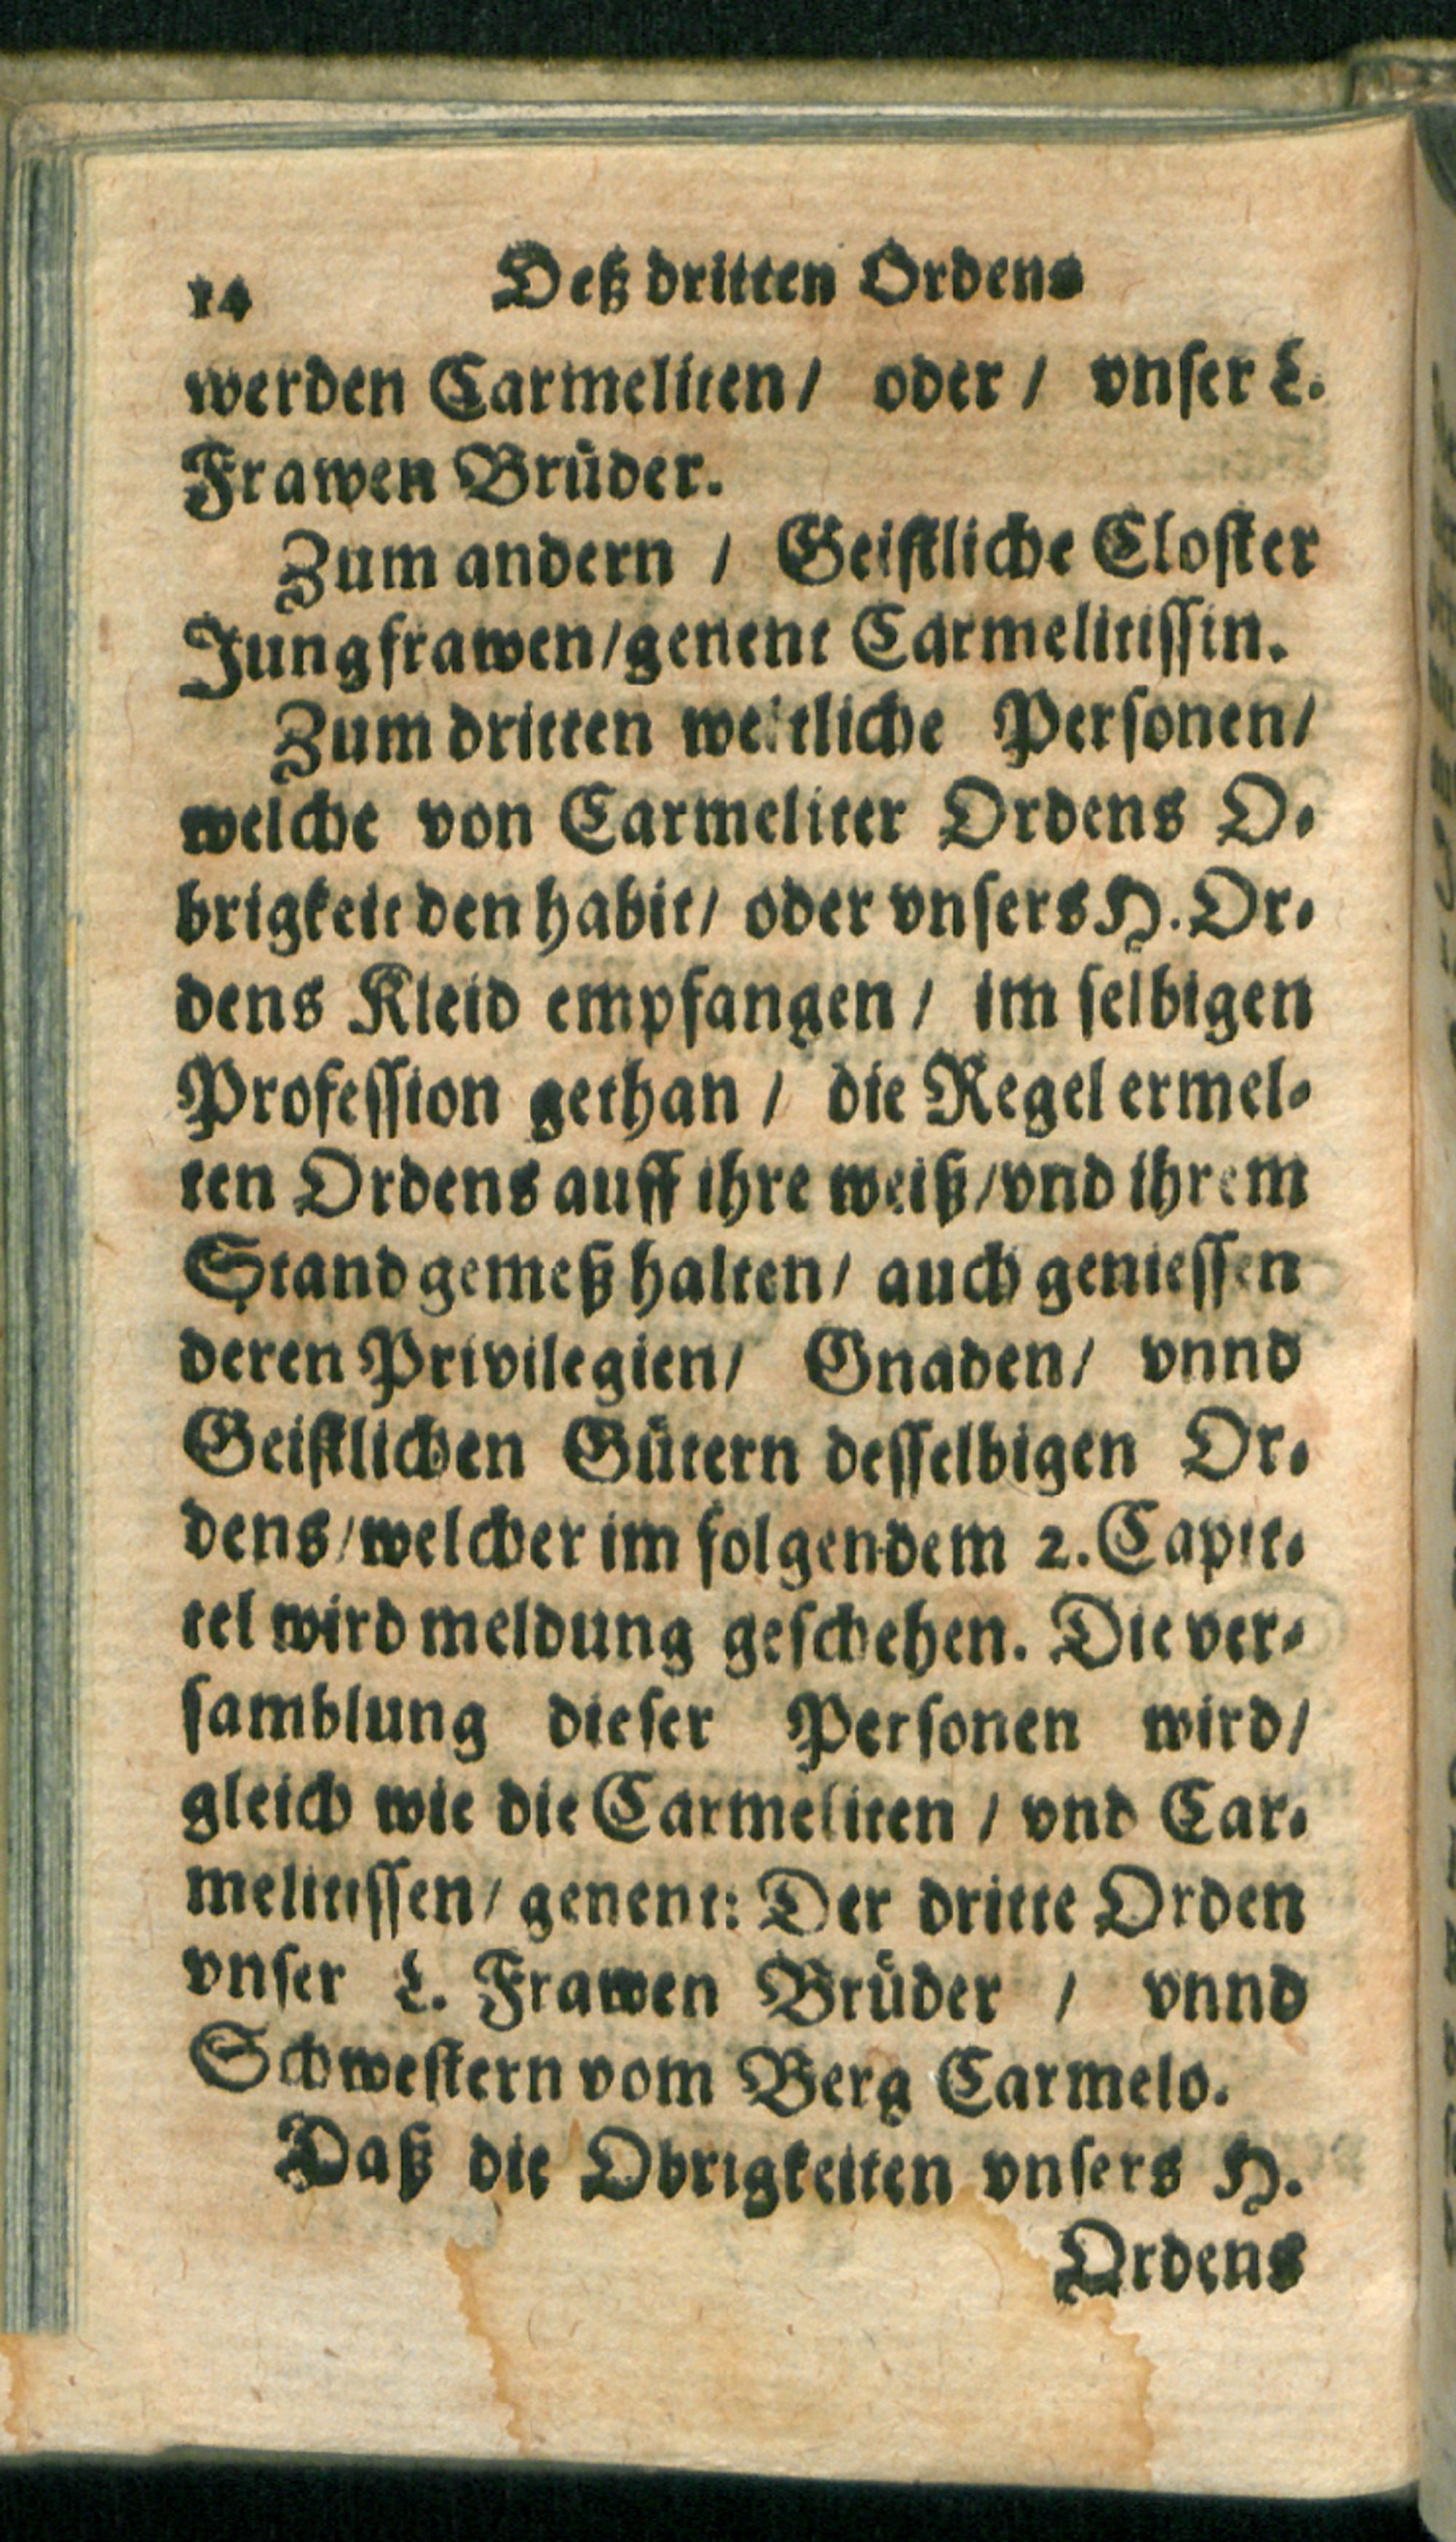 14 Deß dritten Ordens
werden Carmeliten/ oder/ vnser L.
Frawen Brüder.
Zum andern / Geistliche Closter
Jungfrawen/genent Carmelitissin.
Zum dritten weltliche Personen/
welche von Carmeliter Ordens O-
brigkeit den habit/ oder vnsers H. Or-
dens Kleid empfangen / im selbigen
Profession gethan / die Regel ermel-
ten Ordens auff ihre weiß/vnd ihrem
Stand gemeß halten/ auch geniessen
deren Privilegien/ Gnaden/ vnnd
Geistlichen Gütern desselbigen Or-
dens/welcher im folgendem 2. Capit-
tel wird meldung geschehen. Die ver-
samblung dieser Personen wird/
gleich wie die Carmeliten / vnd Car-
melitissen/ genent: Der dritte Orden
vnser L. Frawen Brüder / vnnd
Schwestern vom Berg Carmelo.
Daß die Obrigkeiten vnsers H.
Ordens